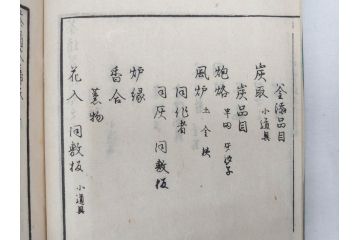 釜添品目
炭取 小道具
炭品目
炮烙 半田
風炉 土 金
同作者
同灰 同敷板
炉縁
香合
薫物
花入 同敷板 小道具